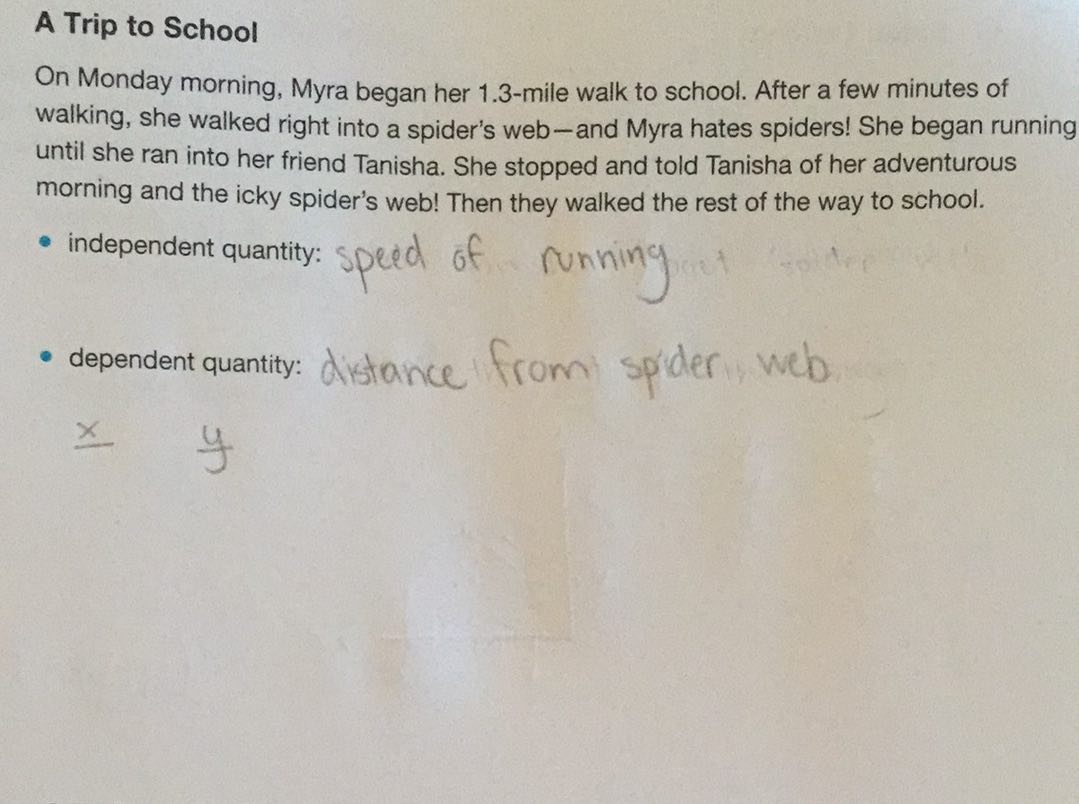 A Trip to School
On Monday morning, Myra began her 1.3-mile walk to school. After a few minutes of
walking, she walked right into a spider's web—and Myra hates spiders! She began running
until she ran into her friend Tanisha. She stopped and told Tanisha of her adventurous
morning and the icky spider's web! Then they walked the rest of the way to school.
• independent quantity: speed of running
• dependent quantity: distance from spider web
x y